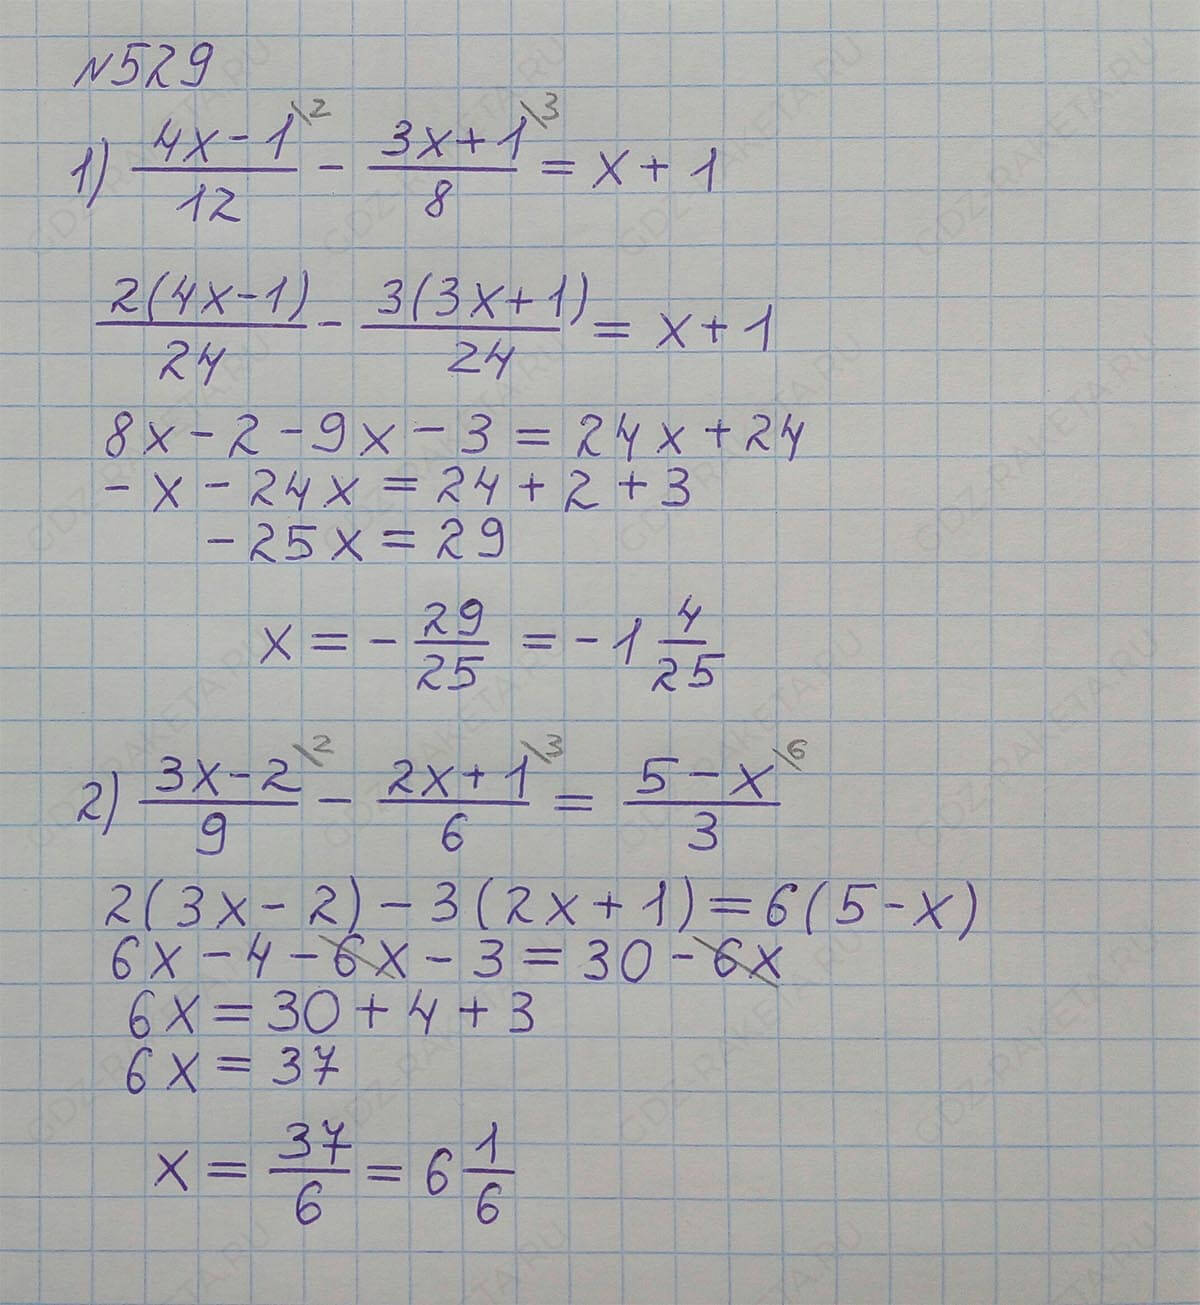 №529
1) \frac{4x-1}{12}^{\2} - \frac{3x+1}{8}^{\3} = x+1
\frac{2(4x-1)}{24} - \frac{3(3x+1)}{24} = x+1
8x-2-9x-3=24x+24
-x-24x=24+2+3
-25x=29
x=-\frac{29}{25}=-1\frac{4}{25}
2) \frac{3x-2}{9}^{\2} - \frac{2x+1}{6}^{\3} = \frac{5-x}{3}^{\6}
2(3x-2)-3(2x+1)=6(5-x)
6x-4-6x-3=30-6x
6x=30+4+3
6x=37
x=\frac{37}{6}=6\frac{1}{6}
GDZ-RAKETA.RU